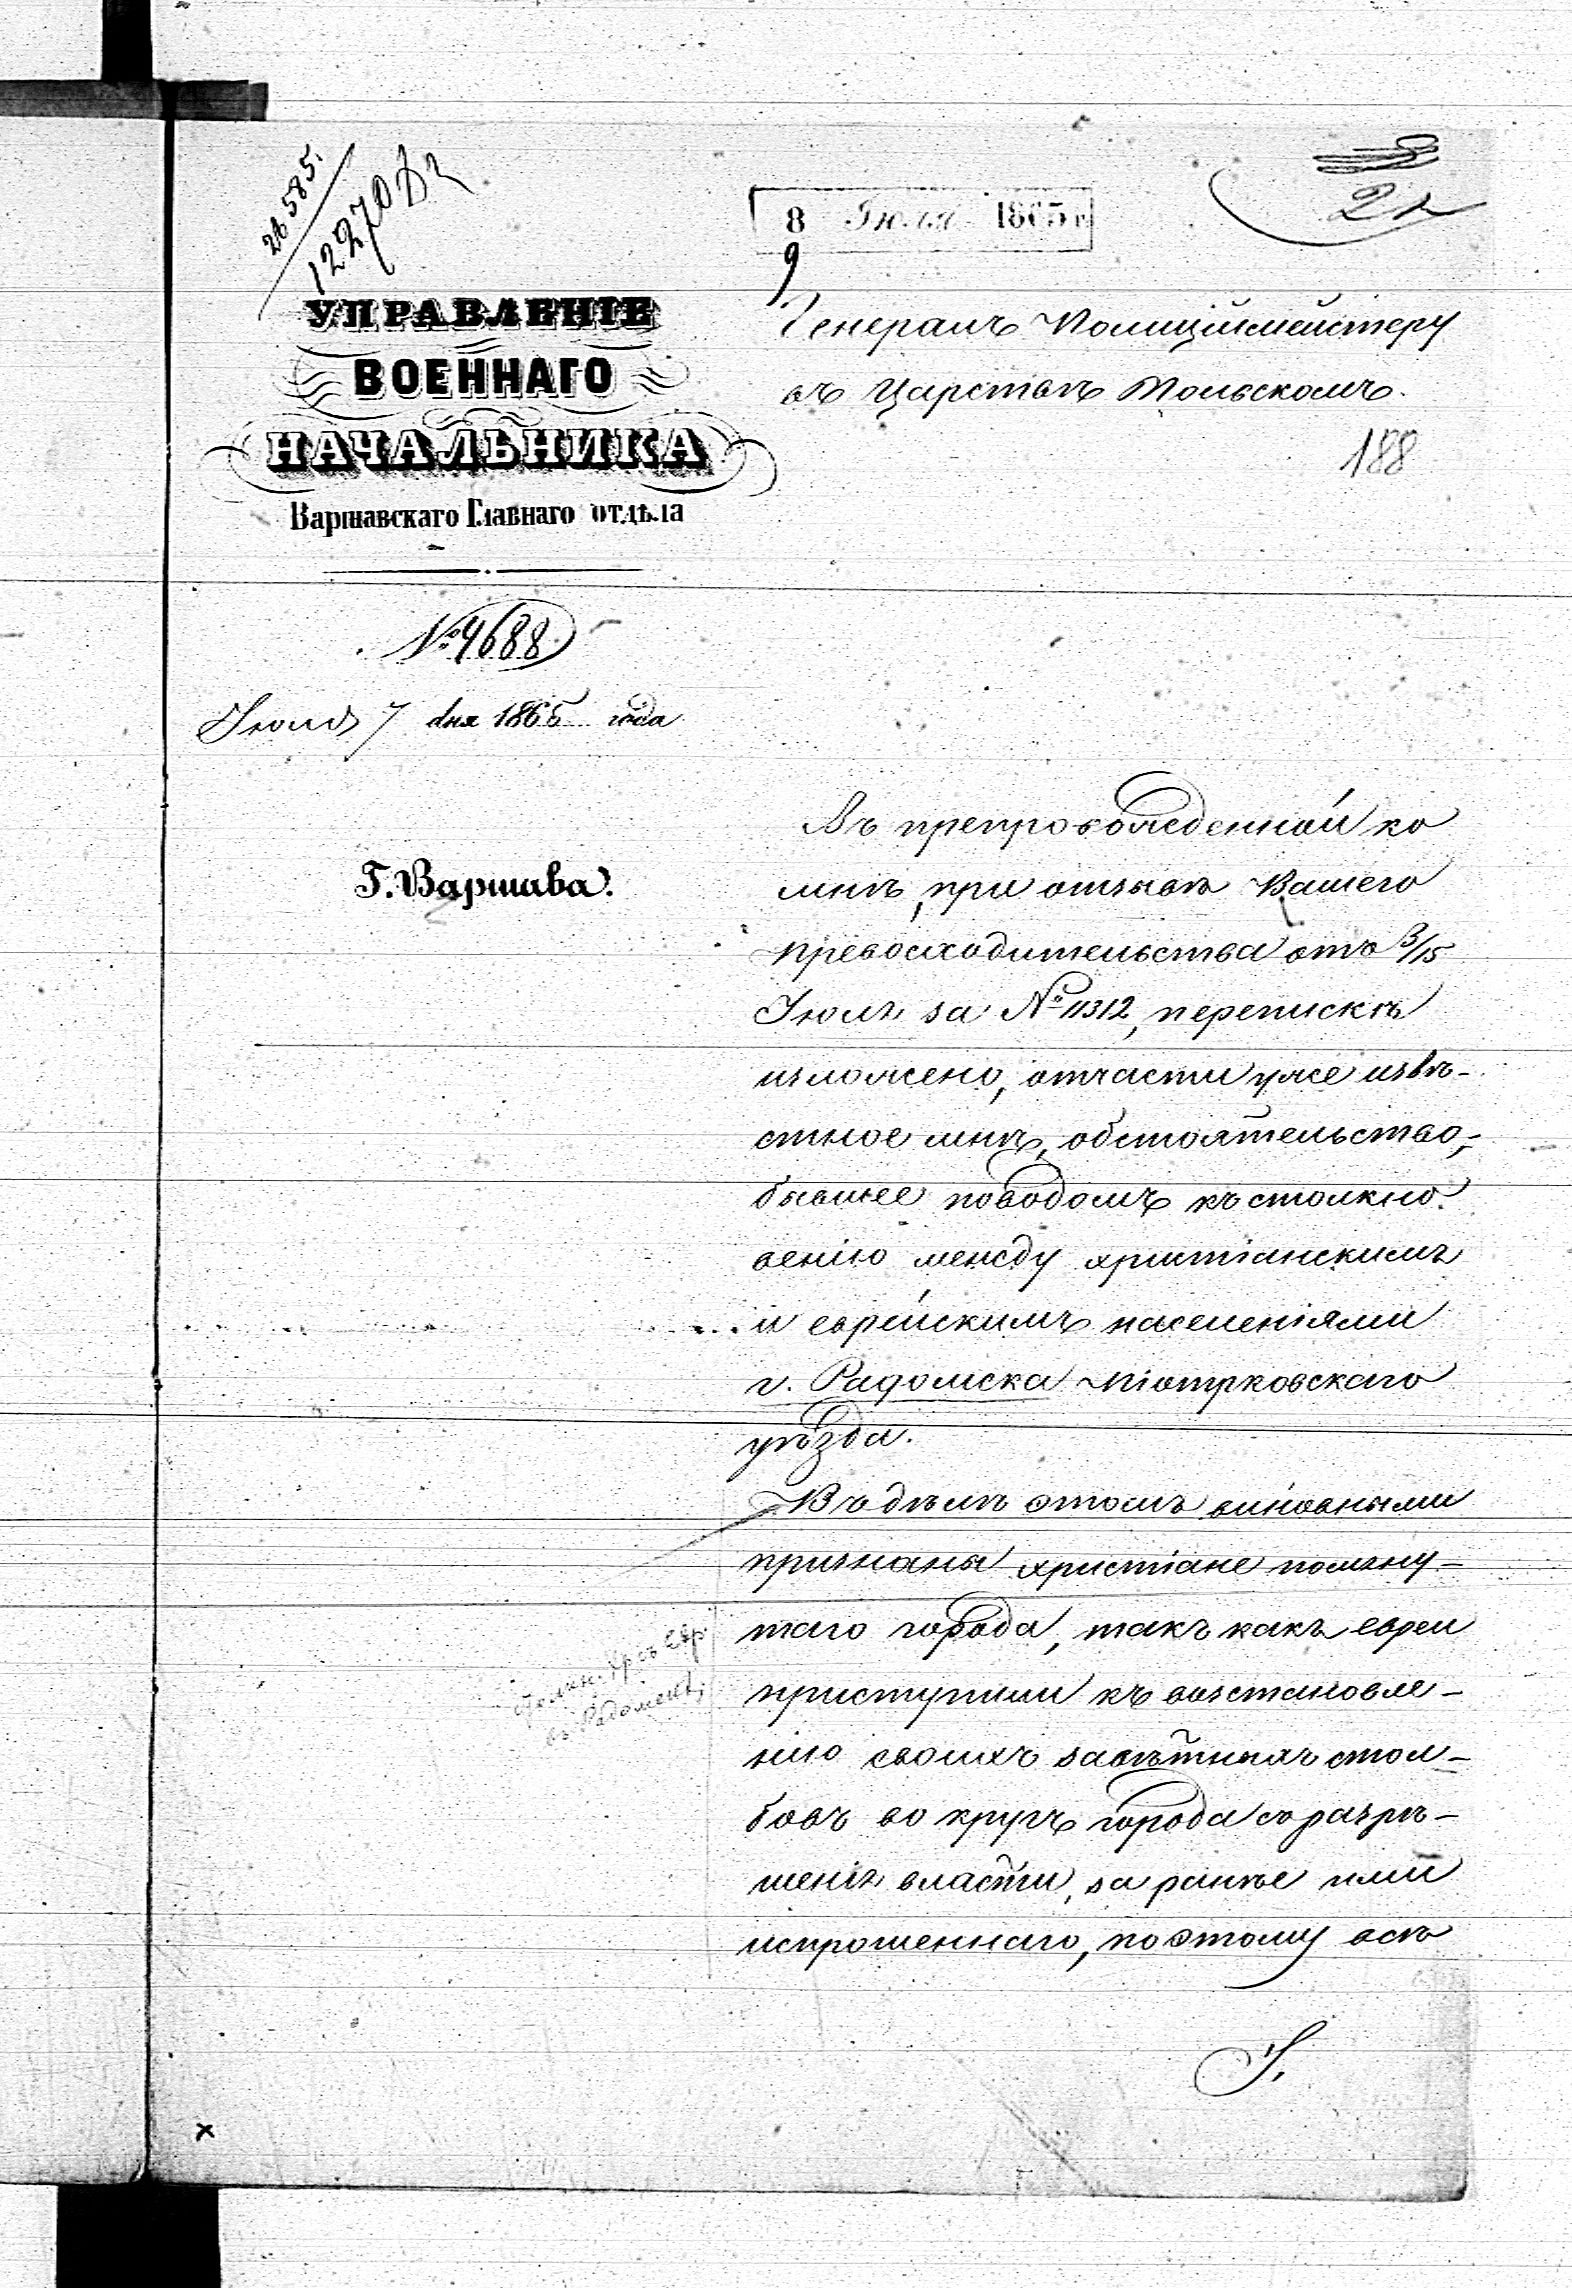 26585.
12270
8 Июля 1865 г.
9
УПРАВЛЕНІЕ
ВОЕННАГО
НАЧАЛЬНИКА
Варшавскаго Главнаго отдѣла
№ 4688
Июля 7 дня 1865 года
Г. Варшава.
Генералъ Полиціймейстеру
въ Царствѣ Польскомъ.
188
Въ препровожденной ко
мнѣ, при отзывѣ Вашего
Превосходительства отъ 3/15
Іюля за № 11312, перепискѣ
изложено, отчасти уже извѣ-
стное мнѣ, обстоятельство,
бывшее поводомъ къ столкно-
венію между христіанскимъ
и еврейскимъ населеніями
г. Радомска Піотрковскаго
уѣзда.
Въ дѣлѣ этомъ виновными
признаны христіане помяну-
таго города, такъ какъ евреи
приступили къ возстановле-
нію своихъ завѣтныхъ стол-
бовъ во кругъ города съ разрѣ-
шенія власти, за ранѣе ими
испрошеннаго, по этому всѣ
въ Радомскѣ